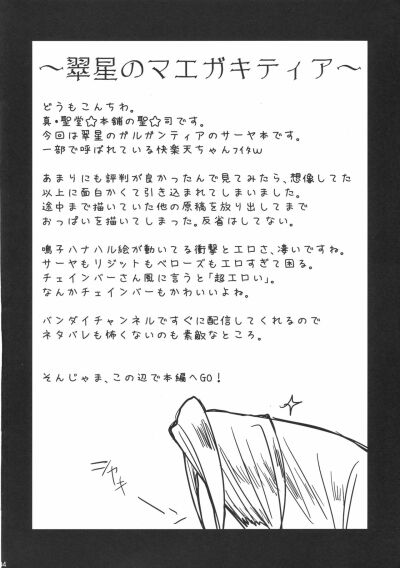 ～翠星のマエガキティア～
どうもこんちわ。
真・聖堂☆本舗の聖☆司です。
今回は翠星のガルガンティアのサーヤ本です。
一部で呼ばれている快楽天ちゃんﾌｲﾀｗ
あまりにも評判が良かったんで見てみたら、想像してた
以上に面白かくて引き込まれてしまいました。
途中まで描いていた他の原稿を放り出してまで
おっぱいを描いてしまった。反省はしてない。
鳴子ハナハル絵が動いてる衝撃とエロさ、凄いですね。
サーヤもリジットもベローズもエロすぎて困る。
チェインバーさん風に言うと「超エロい」。
なんかチェインバーもかわいいよね。
バンダイチャンネルですぐに配信してくれるので
ネタバレも怖くないのも素敵なところ。
そんじゃま、この辺で本編へGO！
ジャキ
04